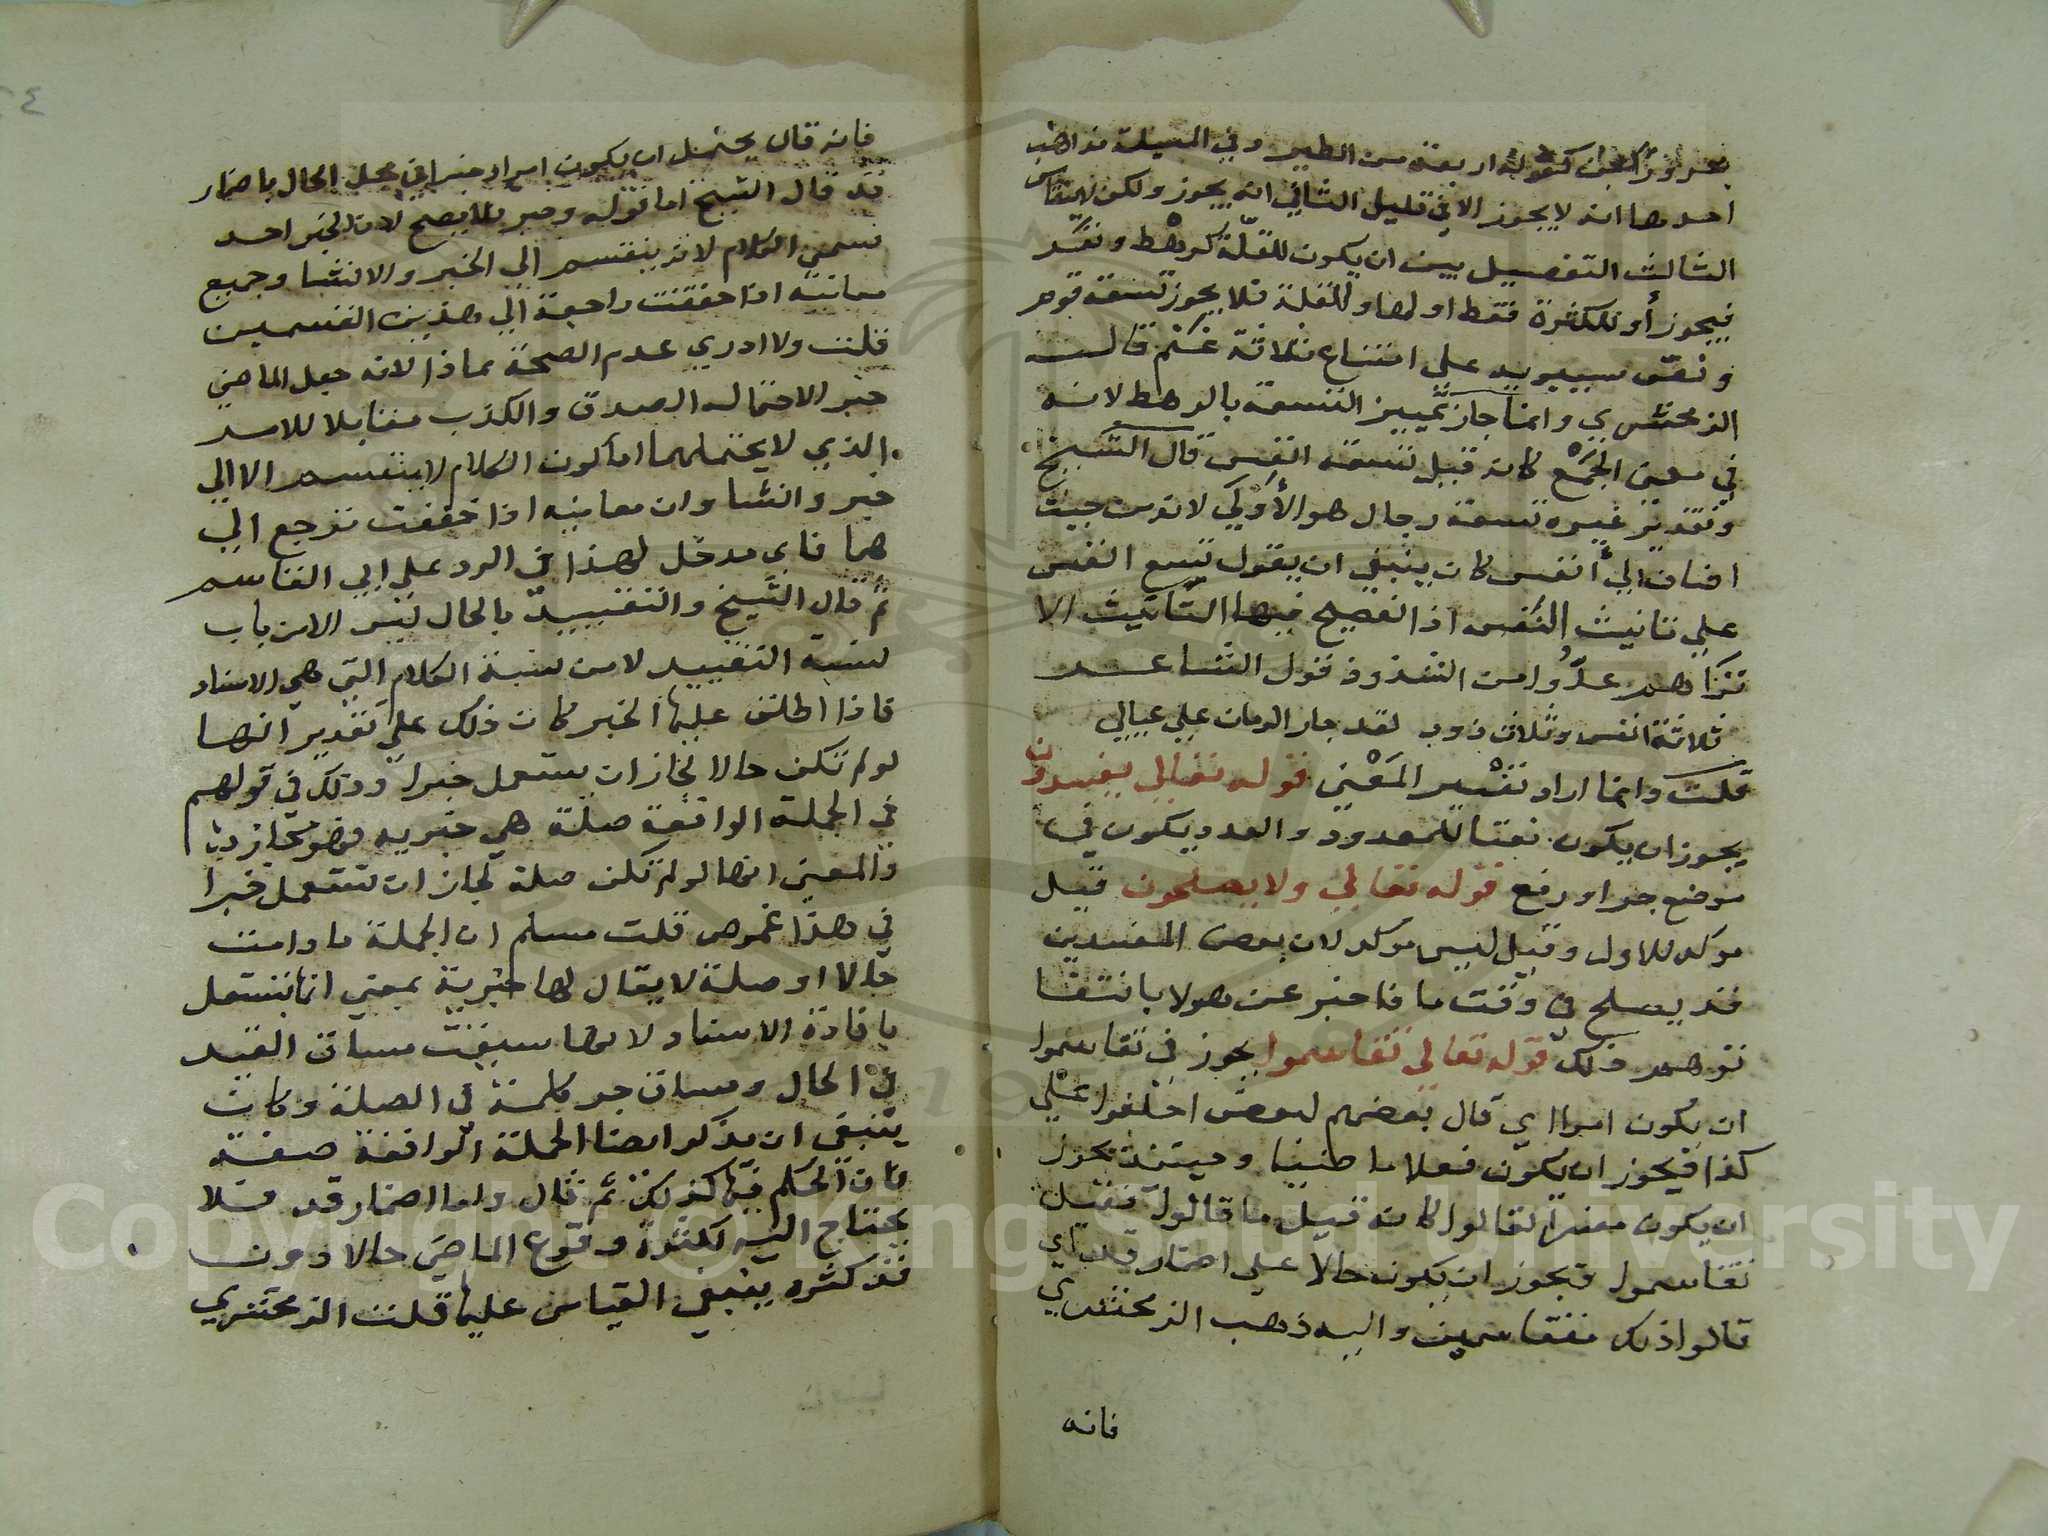 مجرورا بمن كقوله اربعة من الطير وفي المسيلة مذاهب
احدها انه لا يجوز الا في قليل الثاني انه يجوز ولكن لا ينقاس
الثالث التفصيل بين ان يكون للقلة كرهط ونفر
فيجوز أو للكثرة فقط او لها وللقلة فلا يجوز تسعة قوم
ونص سيبويه على امتناع ثلاثة غنم قالـــ
الزمخشري وانما جاز تمييز التسعة بالرهط لانه
في معنى الجمع كانه قيل تسعة انفس قال الشيخ
وتقدير غيره تسعة رجال هو الأولى لانه من حيث
اضاف الي أنفس كان ينبغي ان يقول تسع انفس
على تانيث النفس اذ الفصيح فيها التانيث الا
تراهم عدّوا من الشذوذ قول الشاعـــر
ثلاثة انفس وثلاث ذود لقد جار الزمان علي عيالي
قلت وانما اراد تفسير المعنى قوله تعالى يفسدون
يجوز ان يكون نعتا للمعدود والعدد يكون في
موضع جر او رفع قوله تعالى ولا يصلحون قيل
موكد للاول وقيل ليس موكد لان بعض المفسدين
قد يصلح في وقت ما فاخبر عن هولا بانتفا
توهم ذلك قوله تعالى تقاسموا يجوز في تقاسموا
ان يكون امرا اي قال بعضهم لبعض احلفوا على
كذا فيجوز ان يكون فعلا ماضيا وحينئذ يجوز
ان يكون مفسرا لقالوا كانه قيل ما قالوا فقيل
تقاسموا فيجوز ان يكون حالا على اضمار قد اي
قالوا ذلك متقاسمين واليه ذهب الزمخشري
فانه
فانه قال يحتمل ان يكون امرا وخبرا في محل الحال باضمار
قد قال الشيخ اما قوله وخبرا فلا يصح لان الخبر احد
قسمي الكلام لانه ينقسم الي الخبر والانشا وجميع
معانيه اذا حققت راجعة الي هذين القسمين
قلت ولا ادري عدم الصحة مماذا لانه جعل الماضي
خبر الاحتماله الصدق والكذب مقابلا للامر
الذي لا يحتملهما اما كون الكلام لا ينقسم الا الي
خبر وانشا وان معانيه اذا حققت ترجع الي
هما فاى مدخل لهذا في الرد على ابي القاسم
ثم قال الشيخ والتقييد بالحال ليس الا من باب
نسبة التقييد لا من نسبة الكلام التي هي الاسناد
فاذا اطلق عليها الخبر كان ذلك على تقدير انها
لو لم تكن حالا لجاز ان يستعمل خبرا وذلك في قولهم
في الجملة الواقعة صلة هي خبريه فهو مجاز
والمعنى انها لو لم تكن صلة لجاز ان تستعمل خبرا
في هذا غموض قلت مسلم ان الجملة ما دامت
حالا او صلة لا يقال لها خبرية بمعنى انها تستعمل
بافادة الاسناد لانها سيقت مساق القيد
في الحال ومساق جز كلمة في الصلة وكان
ينبغي ان يذكر ايضا الجملة الواقعة صفة
فان الحكم فيها كذلك ثم قال واما اضمار قد فلا
يحتاج اليه لكثرة وقوع الماضي حالا دون
قد كثره ينبغي القياس عليها قلت الزمخشري
Copyright © King Saud University